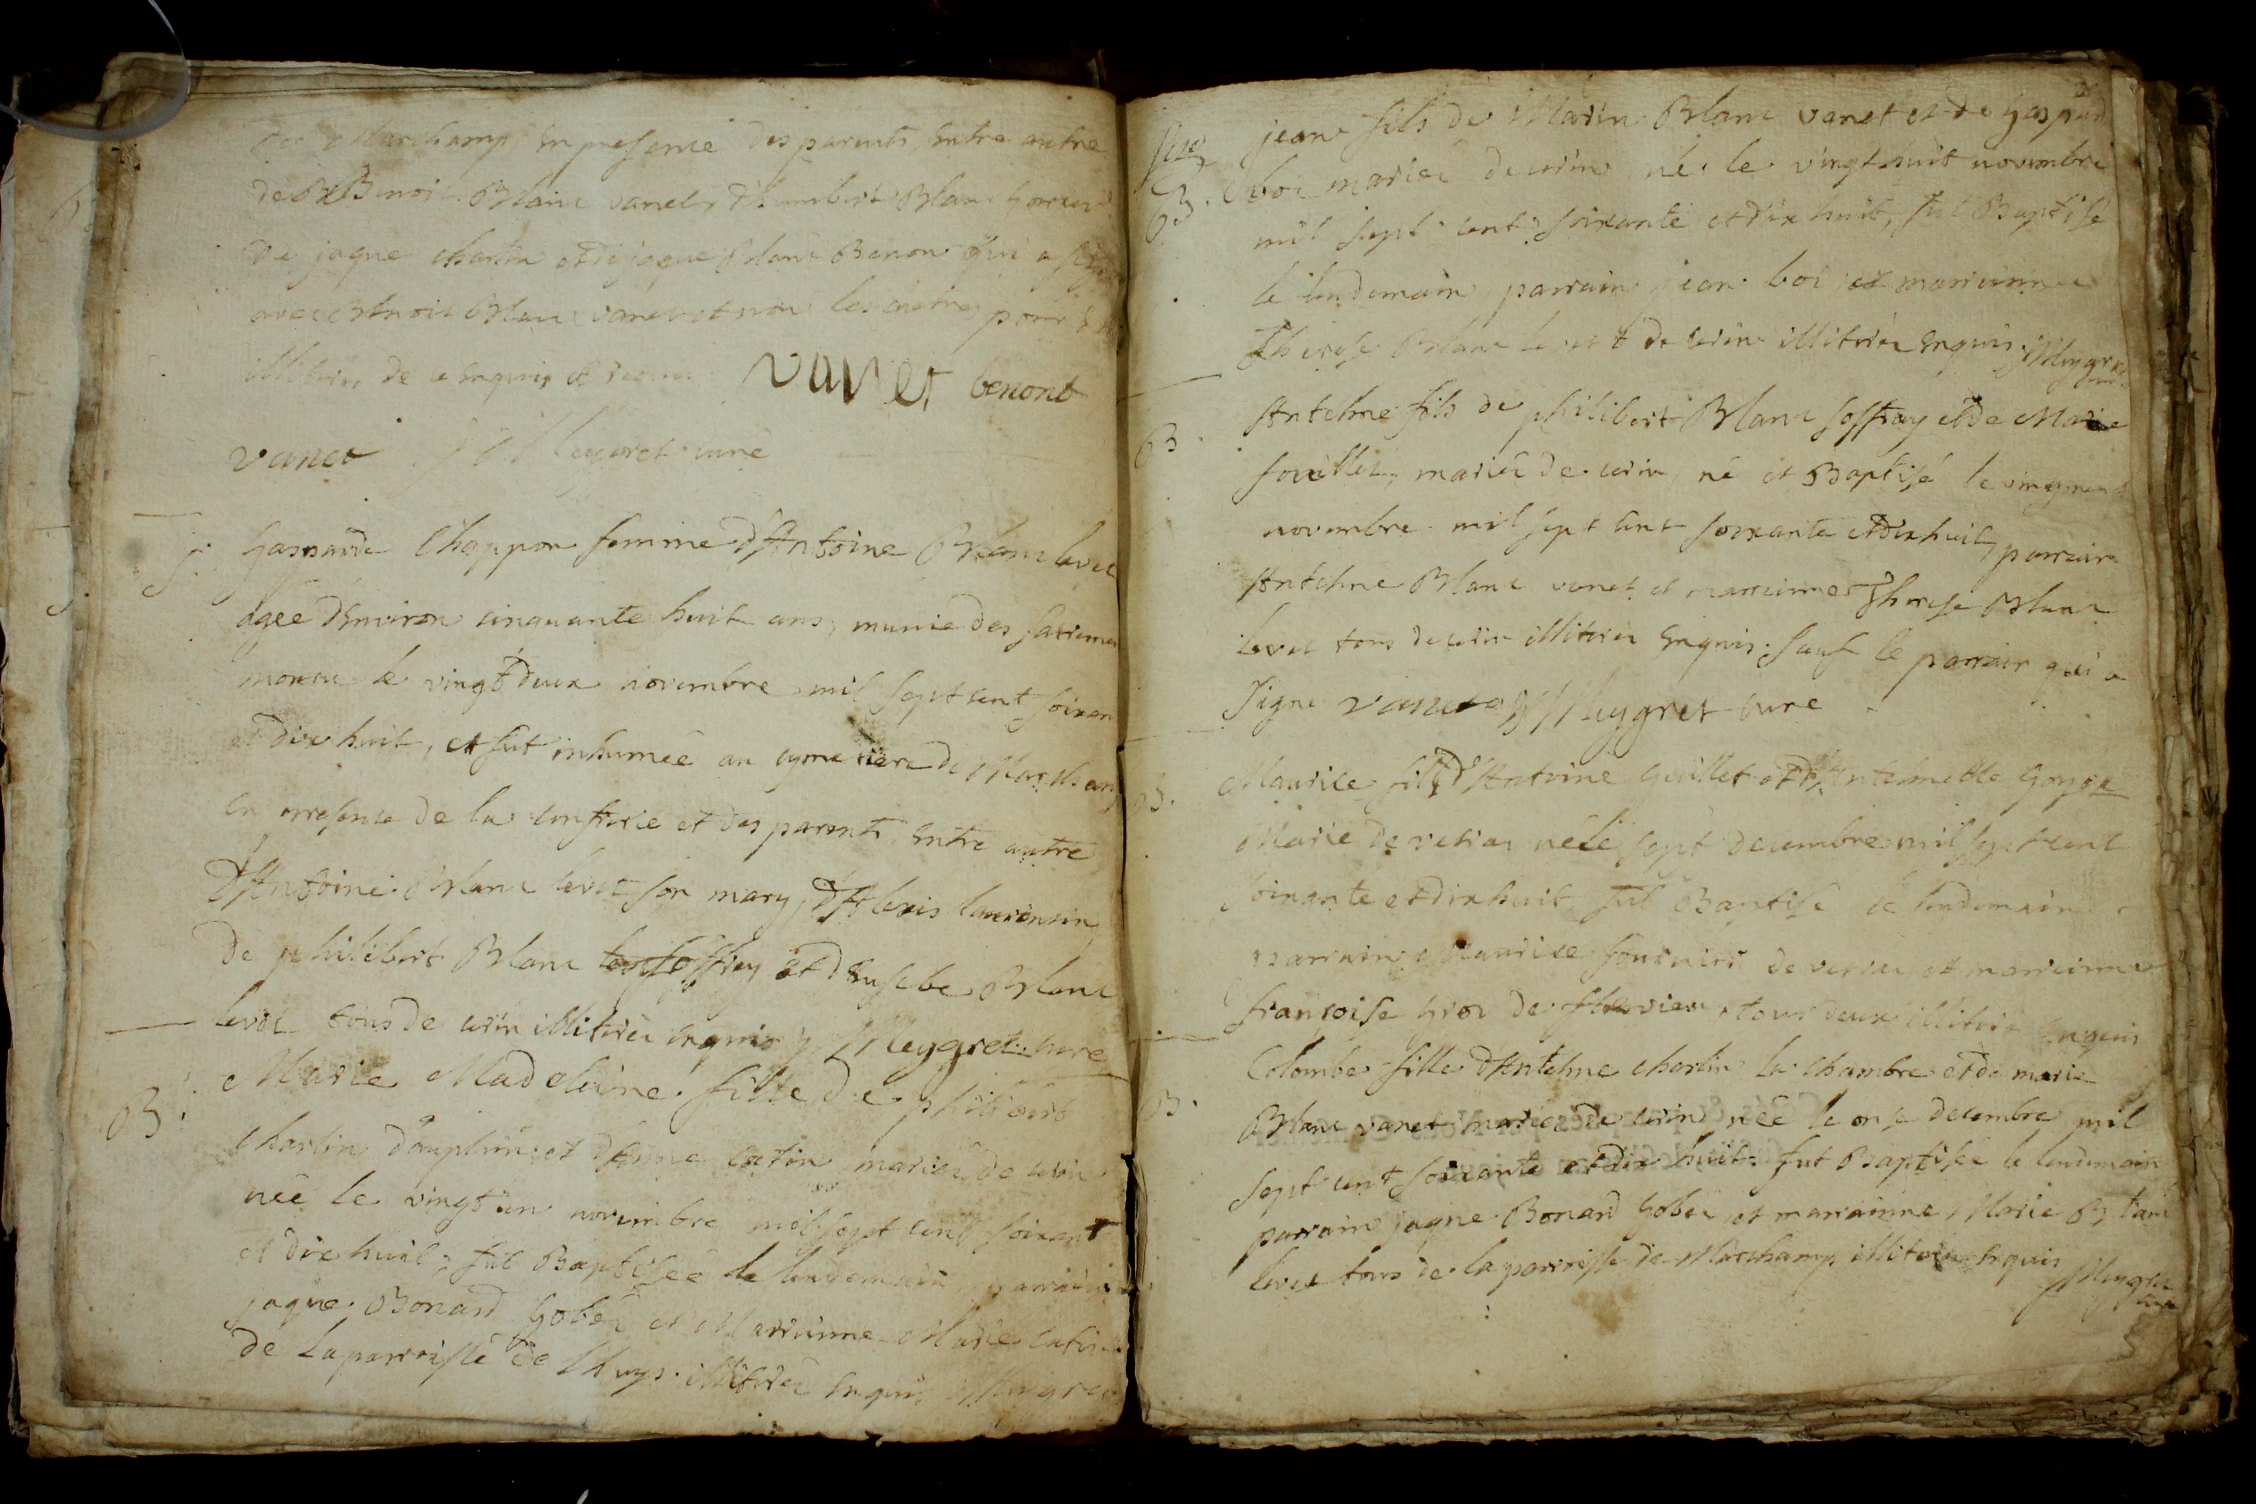 de Marchamp, En presence des parents, Entre autre
de Benoit Blanc vanet, d'humbert Blanc
de jaque charlin et de jaque Blanc Benon qui a signé
avec Benoit Blanc vanet et non les autres pour être
illitérés de ce Enquis et requis vanet benont
vanet Meygret curé
S. Gasparde Chappon femme d'Antoine Blanc levet
agée d'Environ cinquante huit ans, munie des sacremen
mourut le vingt deux novembre mil sept cent soixan
et dix huit, et fut inhumée au cymetiere de Marchamp
En presence de la confrérie et des parents, Entre autre
d'Antoine Blanc levet son mary, d'Alexis laurencin,
de philibert Blanc soffray et d'Eusebe Blanc
levet tous de cerin illitérés Enquis Meygret curé
B. Marie Madeleine fille de philibert
charlin dauphin et d'Anne catin mariés de cerin
née le vingt un novembre mil sept cent soixant
et dix huit, fut Baptisée le lendemain, parrain
jaque Bonard Gobet, et Marrainne Marie catin
de la parroisse de lhuys illitérés Enquis Meygret
jean fils de Marin Blanc vanet et de Gasparde
B. boi mariés de cerin né le vingt huit novembre
mil sept cent soixante et dix huit, fut Baptisé
le lendemain, parrain jean boi et marrainne
Therese Blanc levet de cerin illitérés Enquis Meygret
curé
B. Antelme fils de philibert Blanc soffray et de Marie
mariés de cerin né et Baptisé le
novembre mil sept cent soixante et dix huit, parrain
Antelme Blanc vanet et marrainne Therese Blanc
levet tous de cerin illitérés Enquis sauf le parrain qui a
signé vanet Meygret curé
B. Maurice fils d'Antoine Guillet et d'Antelmette
Mariés de né le sept decembre mil sept cent
soixante et dix huit, fut Baptisé le lendemain
parrain Maurice fournier de et marrainne
françoise de tous deux illitérés Enquis
B. Colombe fille d'Antelme charlin la chambre et de marie
Blanc vanet mariés de cerin, née le onze decembre mil
sept cent soixante et dix huit fut Baptisée le lendemain
parrain jaque Bonard Gobet, et marrainne Marie Blanc
levet tous de la parroisse de Marchamp illitérés Enquis Meygret
curé